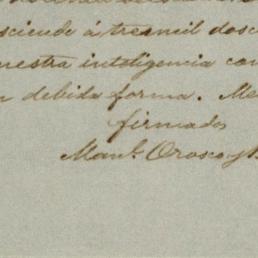 sciende á tresmil dosc
nuestra inteligencia con
n debida forma. Me
firmados
Manl. Orosco y B